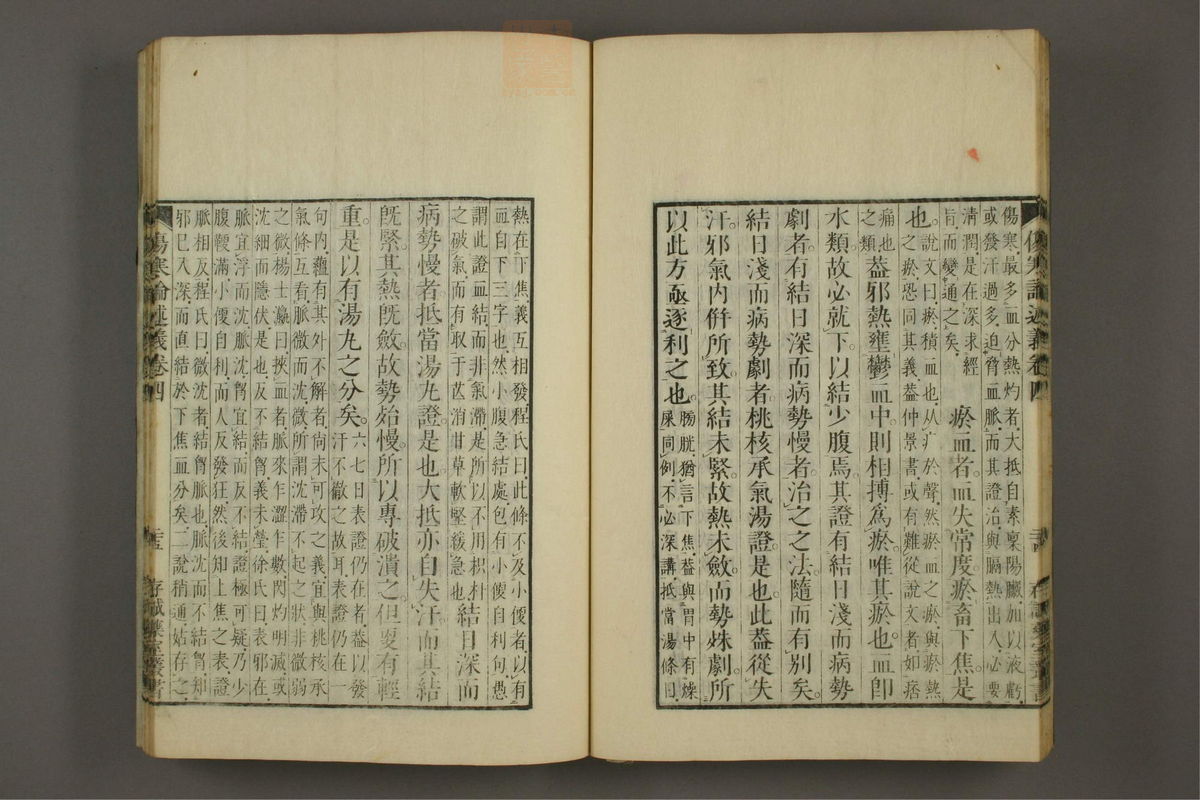 傷寒論述義卷四
傷寒最多血分熱灼者大抵自素稟陽臟加以液虧
或發汗過多迫脅血脈而其證治與膈熱出入必要
清潤是在深求經
旨而變通之矣
瘀血者血失常度瘀畜下焦是
也
說文曰瘀積血也从疒於聲然瘀血之瘀與瘀熱
之瘀恐同其義蓋仲景書或有難從說文者如痞
痛也
之類
蓋邪熱壅鬱血中則相搏爲瘀唯其瘀也血卽
水類故必就下以結少腹焉其證有結日淺而病勢
劇者有結日深而病勢慢者治之之法隨而有別矣
結日淺而病勢劇者桃核承氣湯證是也此蓋從失
汗邪氣內併所致其結未緊故熱未斂而勢殊劇所
以此方亟逐利之也
膀胱猶言下焦蓋與胃中有燥
屎同例不必深講抵當湯條曰
熱在下焦義互相發程氏曰此條不及小便者以有
血自下三字也然小腹急結處包有小便自利句愚
謂此證血結而非氣滯是所以不用枳朴
之破氣而有取于芒消甘草軟堅緩急也
結日深而
病勢慢者抵當湯丸證是也大抵亦自失汗而血結
旣緊其熱旣斂故勢殆慢所以專破潰之但更有輕
重是以有湯丸之分矣
六七日表證仍在者蓋以發
汗不徹之故耳表證仍在一
句內蘊有其外不解者尙未可攻之義宜與桃核承
氣條互看脈微而沈微所謂沈滯不起之狀非微弱
之微楊士瀛曰挾血者脈來乍澀乍數閃灼明滅或
沈細而隱伏是也反不結胷義未瑩徐氏曰表邪在
脈宜浮而沈脈沈胷宜結而反不結證極可疑乃少
腹鞕滿小便自利而人反發狂然後知上焦之表證
脈相反程氏曰微沈者結胷脈也脈沈而不結胷知
邪已入深而直結於下焦血分矣二說稍通姑存之
傷寒論述義卷四
存誠藥室叢書